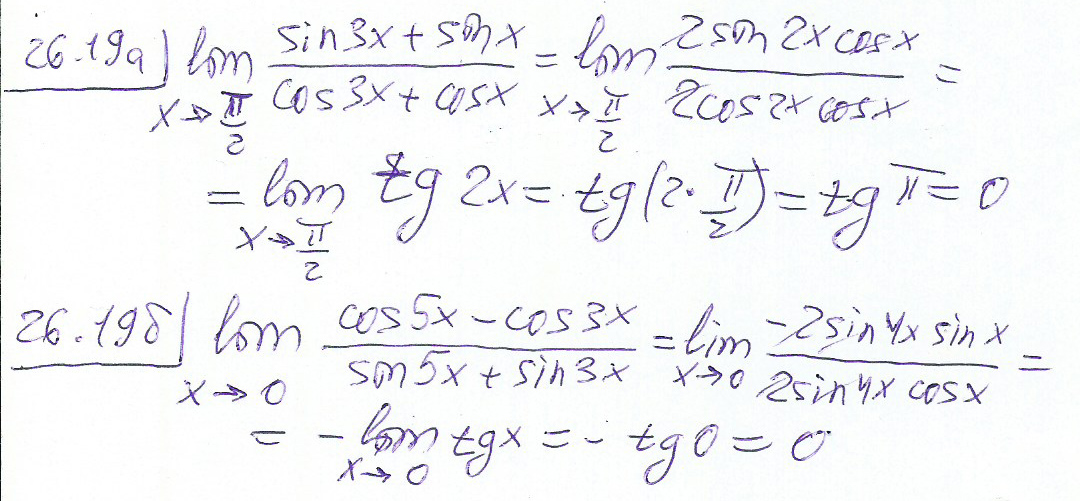 26.19а) lim x→π/2 (sin3x + sin x)/(cos3x + cosx) = lim x→π/2 (2sin 2x cosx)/(2cos2x cosx) =
= lim x→π/2 tg 2x = tg(2·π/2) = tg π = 0
26.19б) lim x→0 (cos5x - cos3x)/(sin5x + sin3x) = lim x→0 (-2sin4x sin x)/(2sin4x cosx) =
= - lim x→0 tgx = - tg0 = 0